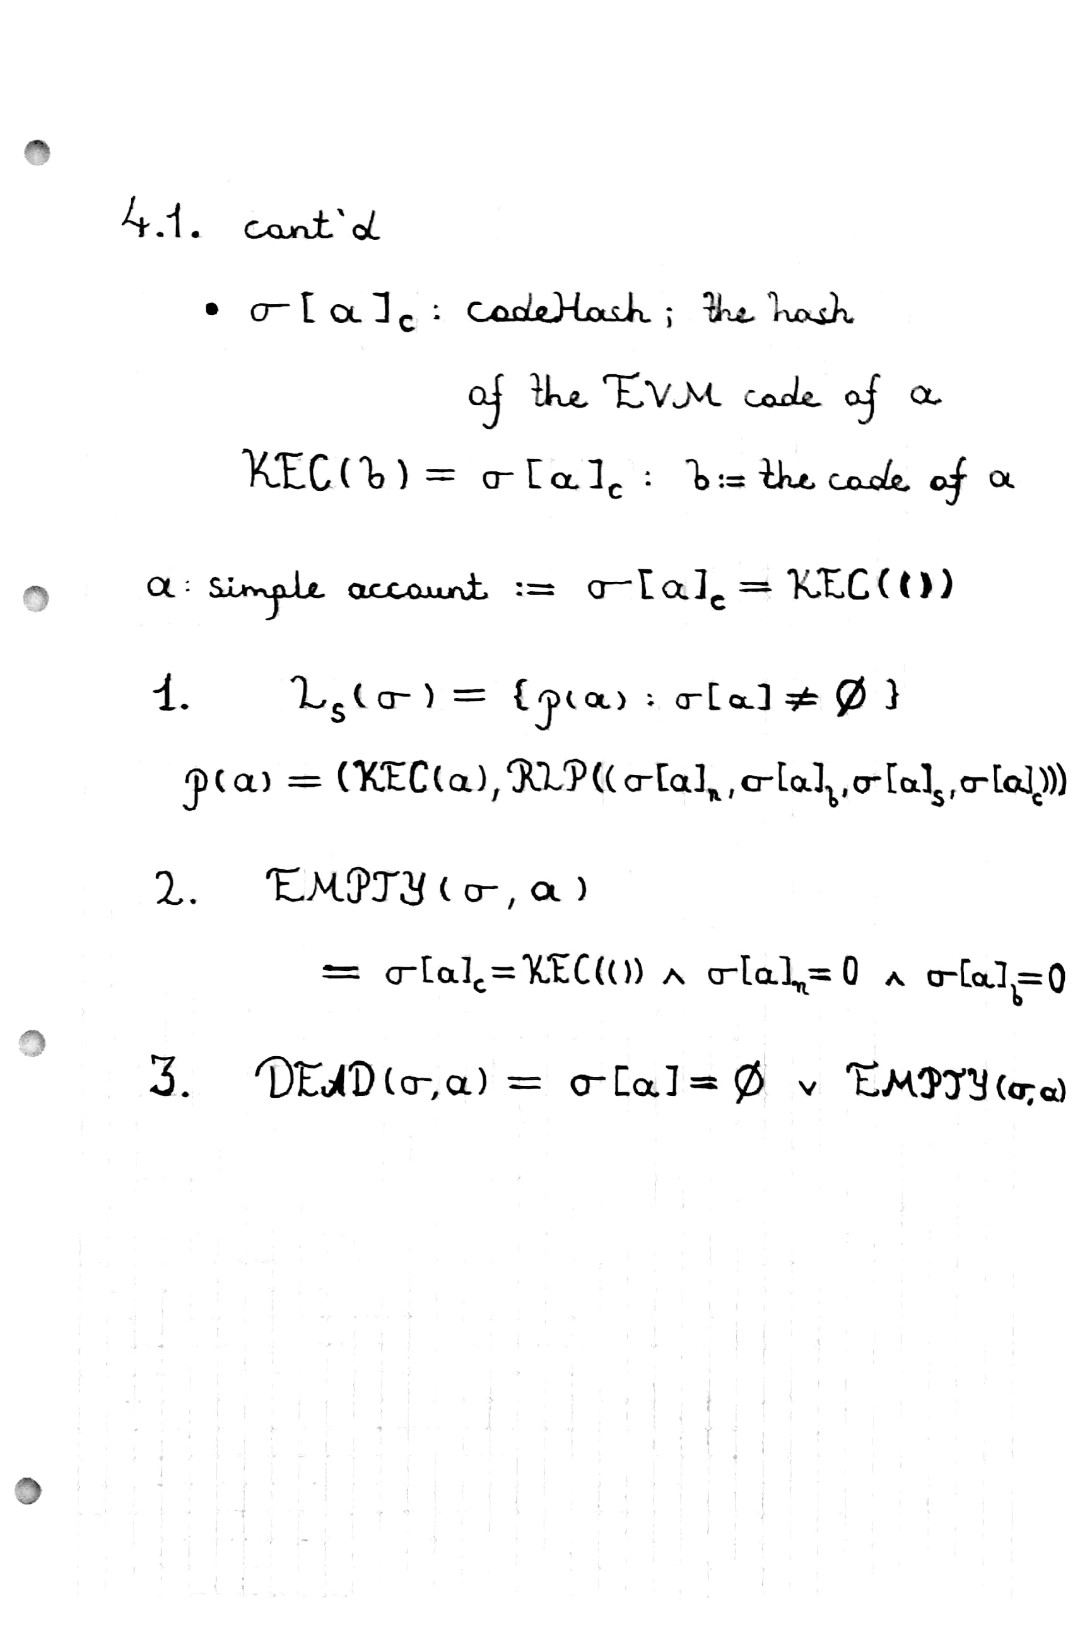 4.1. cont'd
• σ[a]c : codeHash ; the hash
of the EVM code of a
KEC(b) = σ[a]c : b := the code of a
a : simple account := σ[a]c = KEC(())
1. Ls(σ) = {p(a) : σ[a] ≠ ∅ }
p(a) = (KEC(a), RLP((σ[a]n, σ[a]b, σ[a]s, σ[a]c)))
2. EMPTY(σ, a)
= σ[a]c = KEC(()) ∧ σ[a]n = 0 ∧ σ[a]b = 0
3. DEAD(σ, a) = σ[a] = ∅ ∨ EMPTY(σ, a)